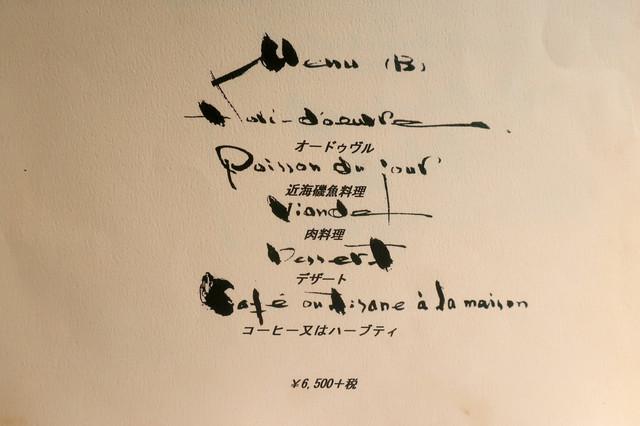 Menu (B)
Hors-d'oeuvre
オードゥヴル
Poisson du jour
近海磯魚料理
Viande
肉料理
Dessert
デザート
Café ou Tisane à la maison
コーヒー又はハーブティ
￥6,500＋税